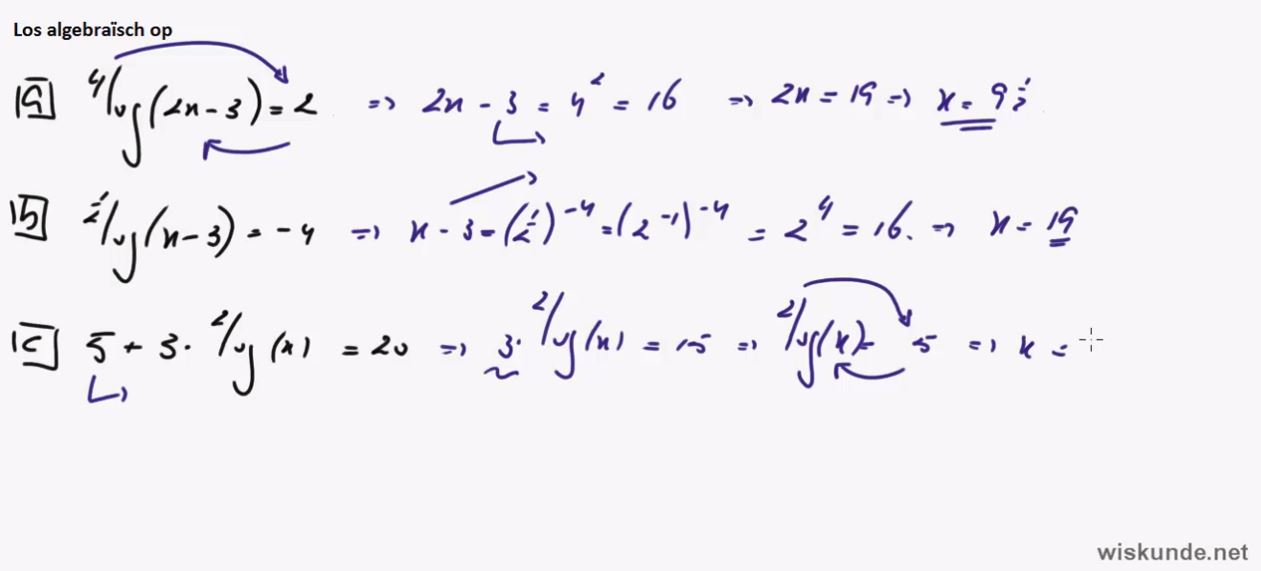 Los algebraïsch op
a ⁴log(2x-3) = 2 => 2x - 3 = 4² = 16 => 2x = 19 => x = 9½
b ½log(x-3) = -4 => x - 3 = (½)⁻⁴ = (2⁻¹)⁻⁴ = 2⁴ = 16. => x = 19
c 5 + 3 · ²log(x) = 20 => 3 · ²log(x) = 15 => ²log(x) = 5 => x =
wiskunde.net